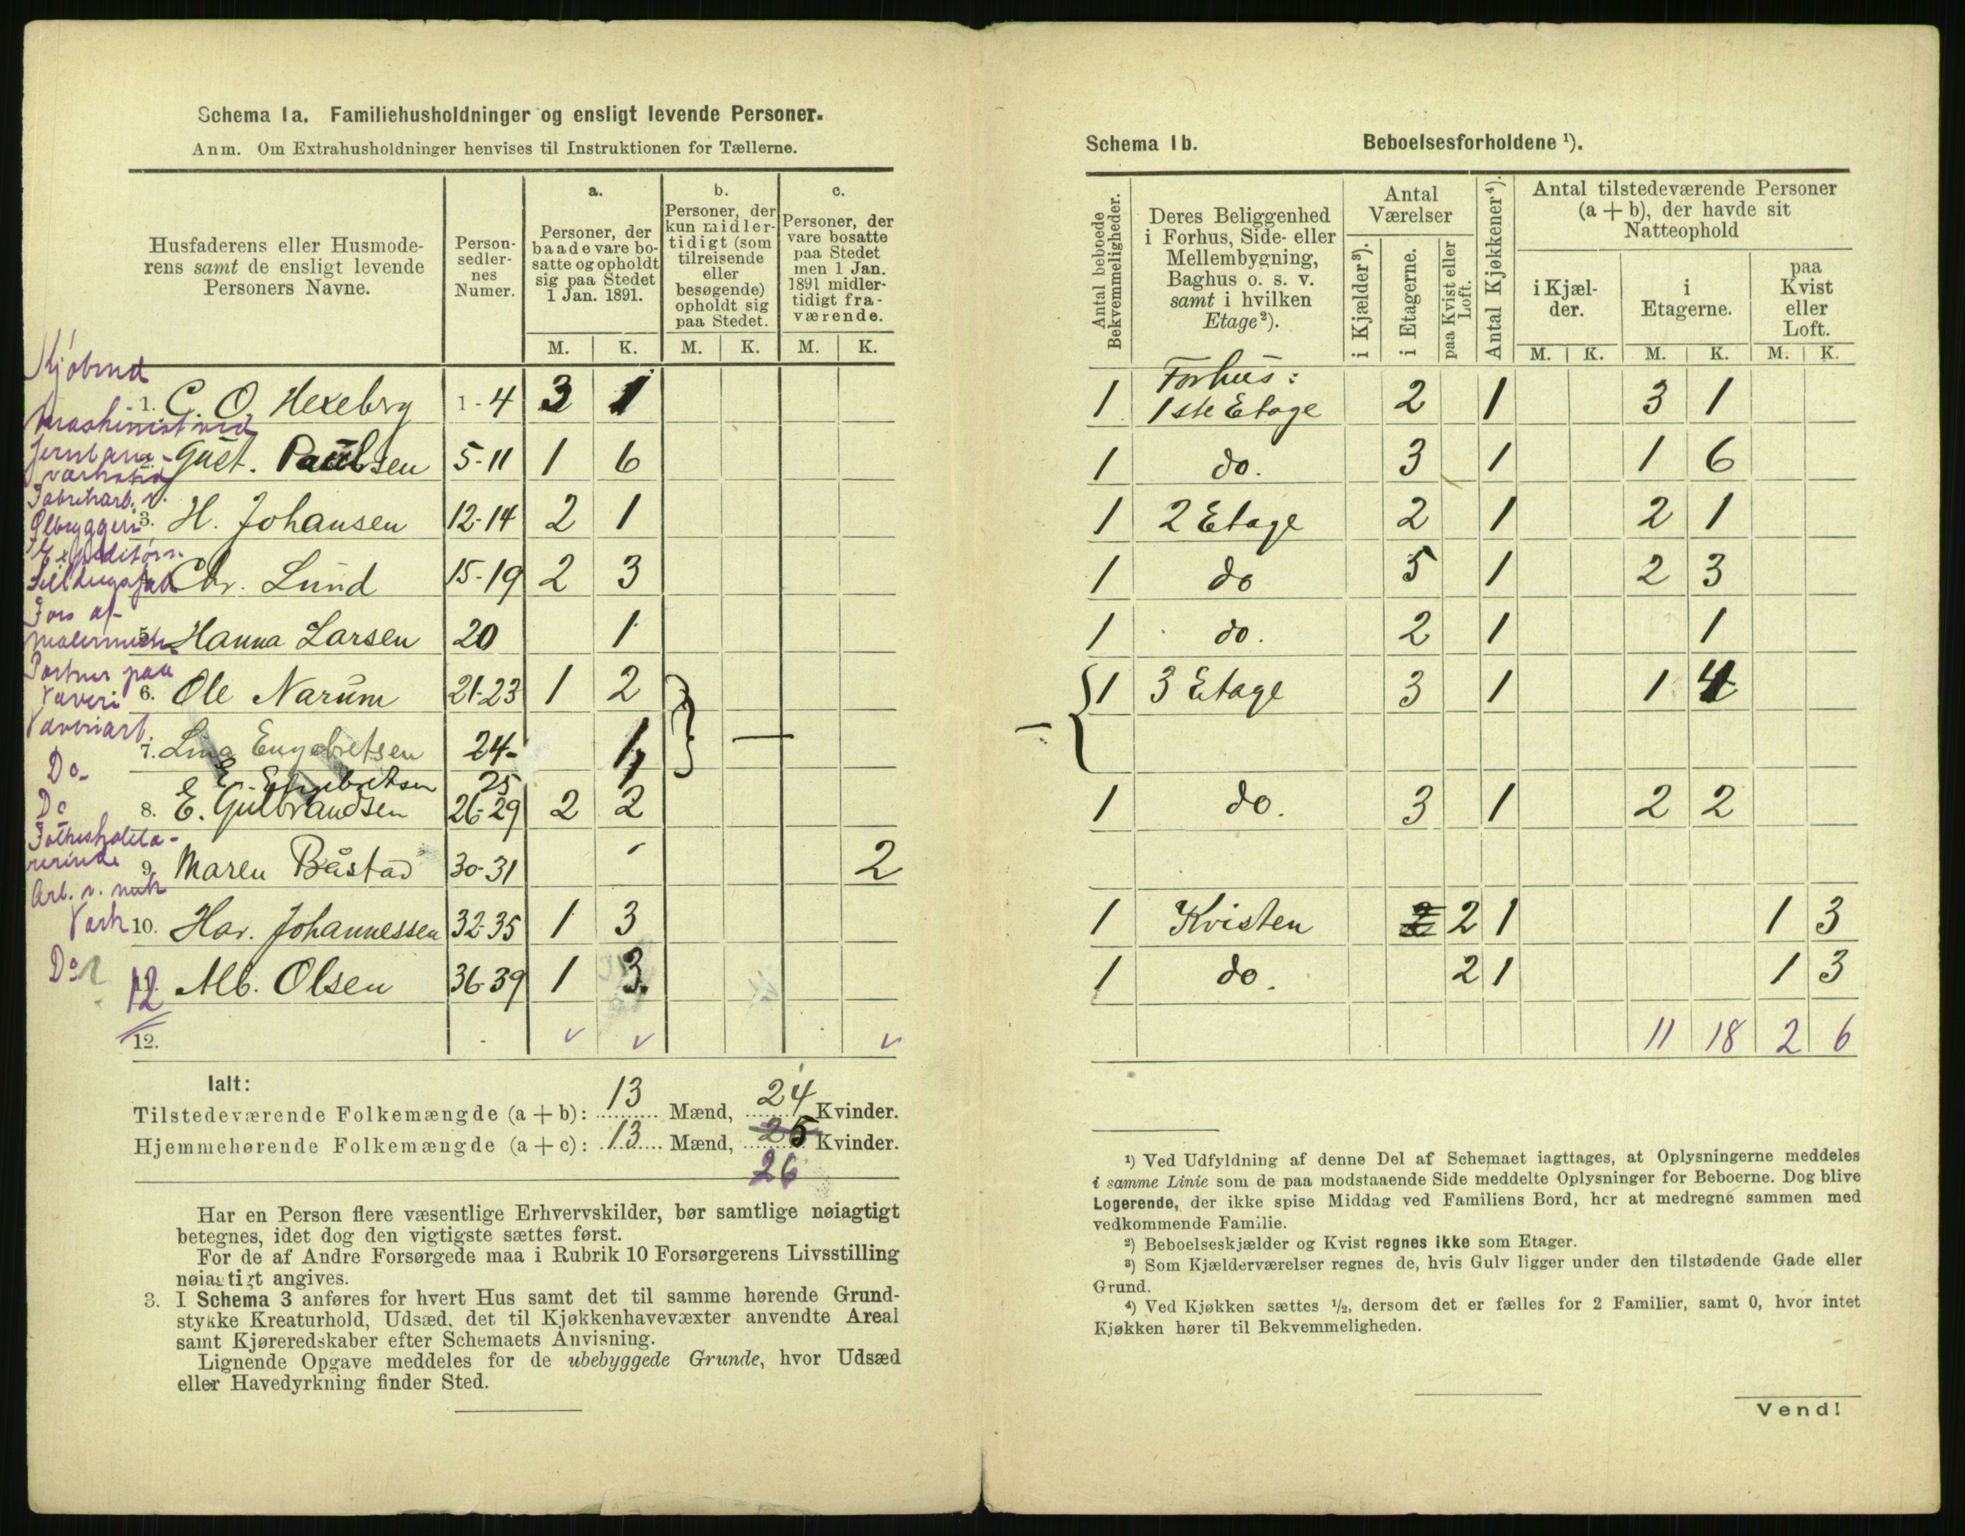 Schema 1a. Familiehusholdninger og ensligt levende Personer.
Anm. Om Extrahusholdninger henvises til Instruktionen for Tællerne.
Husfaderens eller Husmode-
rens samt de ensligt levende
Personers Navne.
Person-
sedler-
nes
Numer.
a.
Personer, der
baade vare bo-
satte og opholdt
sig paa Stedet
1 Jan. 1891.
b.
Personer, der
kun midler-
tidigt (som
tilreisende
eller
besøgende)
opholdt sig
paa Stedet.
c.
Personer, der
vare bosatte
paa Stedet
men 1 Jan.
1891 midler-
tidigt fra-
værende.
M. K. M. K. M. K.
Kjøbmd
1. C. O. Hexeberg 1-4 3 1
Maskinist ved
2. Gust. Paulsen 5-11 1 6
Fabrikarb. v.
Ølbryggeri
3. H. Johansen 12-14 2 1
Expeditør v.
Chr. Lund 15-19 2 3
Fors af
5. Hanna Larsen 20 1
Portner paa
Væveri
6. Ole Narum 21-23 1 2
Væveriarb.
7. Lina Engebretsen 24- 1
Do
E. Engebretsen 25 1
Do
8. E. Gulbrandsen 26-29 2 2
9. Maren Båstad 30-31 2
Arb. v. mek
Værk
10. Har. Johannessen 32-35 1 3
Do
11. Alb. Olsen 36-39 1 3
12
12.
Ialt:
Tilstedeværende Folkemængde (a + b): 13 Mænd, 24 Kvinder.
Hjemmehørende Folkemængde (a + c): 13 Mænd, 25 Kvinder.
26
Har en Person flere væsentlige Erhvervskilder, bør samtlige nøiagtigt
betegnes, idet dog den vigtigste sættes først.
For de af Andre Forsørgede maa i Rubrik 10 Forsørgerens Livsstilling
nøiagtigt angives.
3. I Schema 3 anføres for hvert Hus samt det til samme hørende Grund-
stykke Kreaturhold, Udsæd, det til Kjøkkenhavevæxter anvendte Areal
samt Kjøreredskaber efter Schemaets Anvisning.
Lignende Opgave meddeles for de ubebyggede Grunde, hvor Udsæd
eller Havedyrkning finder Sted.
Schema 1b. Beboelsesforholdene ¹).
Antal beboede
Bekvemmeligheder.
Deres Beliggenhed
i Forhus, Side- eller
Mellembygning,
Baghus o. s. v.
samt i hvilken
Etage²).
Antal
Værelser
i Kjælder³).
i Etagerne.
paa Kvist eller
Loft.
Antal Kjøkkener⁴).
Antal tilstedeværende Personer
(a + b), der havde sit
Natteophold
i Kjæl-
der.
i
Etagerne.
paa
Kvist
eller
Loft.
M. K. M. K. M. K.
Forhus:
1 1ste Etage 2 1 3 1
1 do. 3 1 1 6
1 2 Etage 2 1 2 1
1 do 5 1 2 3
1 do. 2 1 1
1 3 Etage 3 1 1 4
1 do. 3 1 2 2
1 Kvisten 2 2 1 1 3
1 do. 2 1 1 3
11 18 2 6
¹) Ved Udfyldning af denne Del af Schemaet iagttages, at Oplysningerne meddeles
i samme Linie som de paa modstaaende Side meddelte Oplysninger for Beboerne. Dog blive
Logerende, der ikke spise Middag ved Familiens Bord, her at medregne sammen med
vedkommende Familie.
²) Beboelseskjælder og Kvist regnes ikke som Etager.
³) Som Kjælderværelser regnes de, hvis Gulv ligger under den tilstødende Gade eller
Grund.
⁴) Ved Kjøkken sættes ½, dersom det er fælles for 2 Familier, samt 0, hvor intet
Kjøkken hører til Bekvemmeligheden.
Vend!